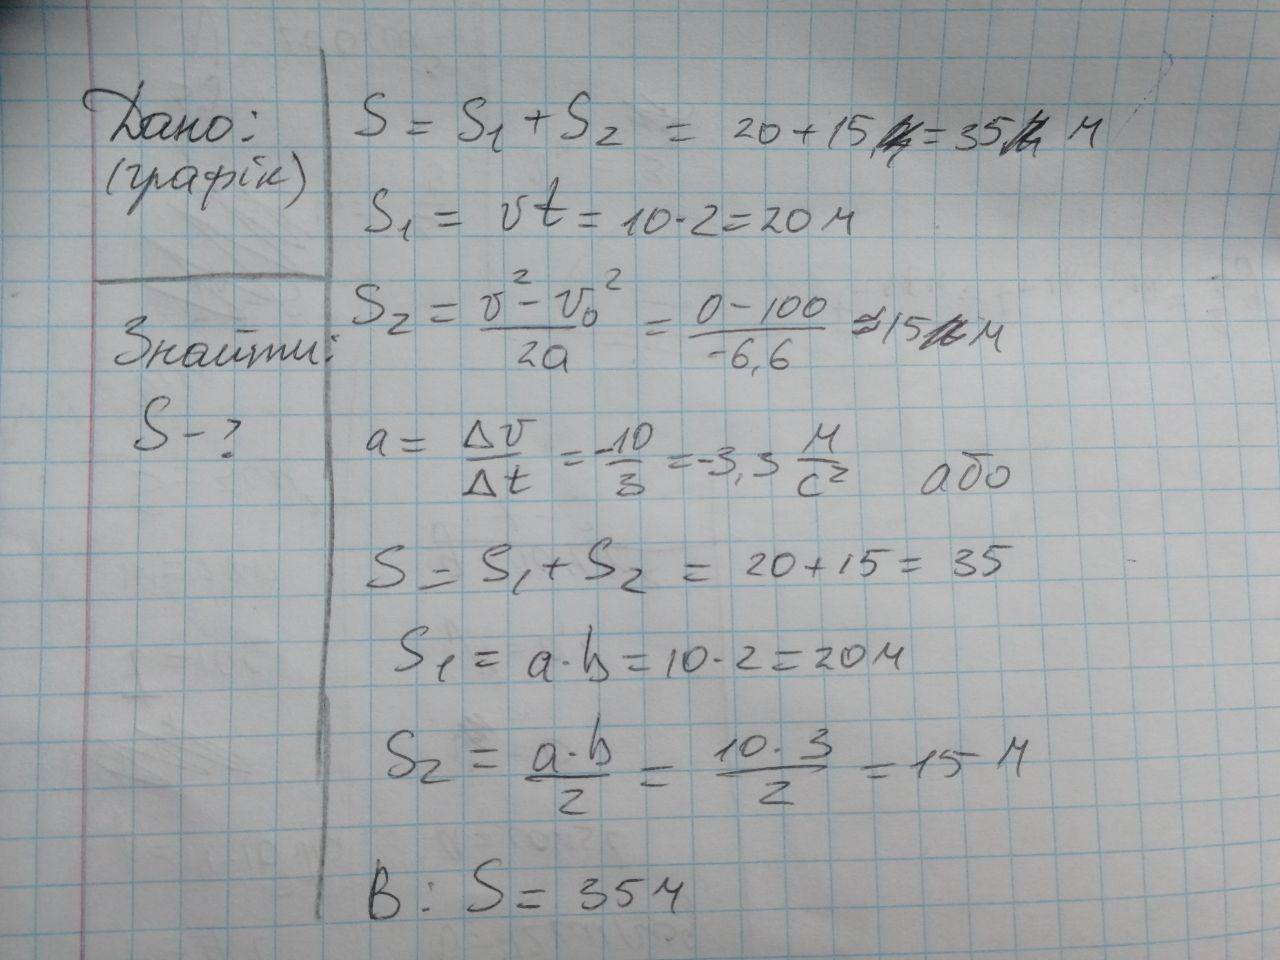 Дано:
(графік)
Знайти:
S-?
S = S₁ + S₂ = 20 + 15 = 35 м
S₁ = vt = 10·2 = 20 м
S₂ = (v² - v₀²)/(2a) = (0 - 100)/(-6,6) ≈ 15 м
a = Δv/Δt = -10/3 = -3,3 м/с² або
S = S₁ + S₂ = 20 + 15 = 35
S₁ = a·b = 10·2 = 20 м
S₂ = (a·b)/2 = (10·3)/2 = 15 м
В: S = 35 м